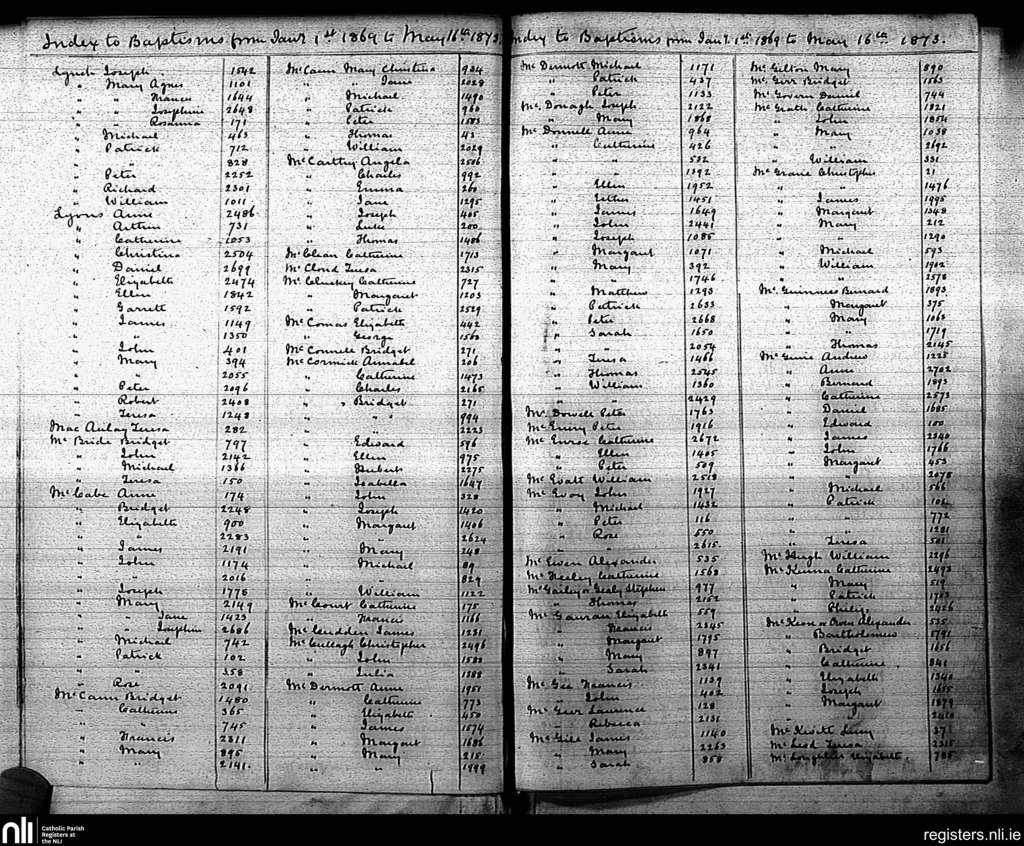 Index to Baptisms from Jany 1st 1869 to May 16th 1873.
Lynch Joseph 1542
" Mary Agnes 1101
" " Francis 1644
" " Josephine 2648
" " Rosanna 171
" Michael 463
" Patrick 712
" " 828
" Peter 2252
" Richard 2301
" William 1011
Lyons Anne 2486
" Arthur 731
" Catherine 1053
" Christina 2504
" Daniel 2699
" Elizabeth 2474
" Ellen 1842
" Garrett 1592
" James 1149
" " 1350
" John 401
" Mary 394
" " 2055
" Peter 2096
" Robert 2408
" Teresa 1248
Mac Aulay Teresa 282
Mc Bride Bridget 797
" John 2142
" Michael 1366
" Teresa 150
Mc Cabe Anne 174
" Bridget 2248
" Elizabeth 900
" " 2283
" James 2191
" John 1174
" " 2016
" Joseph 1778
" Mary 2149
" " Jane 1423
" " Josephine 2686
" Michael 742
" Patrick 102
" " 358
" Rose 2091
Mc Cann Bridget 1480
" Catherine 365
" " 745
" Francis 2311
" Mary 895
" " 2141
Mc Cann Mary Christina 934
" " Jane 2028
" Michael 1490
" Patrick 960
" Peter 1583
" Thomas 43
" William 2029
Mc Carthy Angela 2506
" Charles 992
" Emma 260
" Jane 1295
" Joseph 405
" Luke 200
" Thomas 1486
Mc Clean Catherine 1713
Mc Cloud Teresa 2315
Mc Cluskey Catherine 727
" Margaret 1203
" Patrick 2529
Mc Comas Elizabeth 442
" George 1560
Mc Connell Bridget 271
Mc Cormick Annabel 206
" Catherine 1473
" Charles 2165
" Bridget 271
" " 994
" " 2223
" Edward 596
" Ellen 975
" Hubert 2275
" Isabella 1647
" John 328
" Joseph 1420
" Margaret 1406
" " 2624
" Mary 248
" Michael 89
" " 829
" William 1122
Mc Court Catherine 175
" Francis 1166
Mc Cudden James 1231
Mc Cullagh Christopher 2496
" John 1583
" Julia 1388
Mc Dermott Anne 1951
" Catherine 773
" Elizabeth 450
" James 1574
" Margaret 1686
" Mary 215
" " 1999
Index to Baptisms from Jany 1st 1869 to May 16th 1873.
Mc Dermott Michael 1171
" Patrick 437
" Peter 1133
Mc Donagh Joseph 2122
" Mary 1868
Mc Donnell Anne 964
" Catherine 426
" " 532
" " 1392
" Ellen 1952
" Esther 1451
" James 1649
" John 2441
" Joseph 1085
" Margaret 1071
" Mary 392
" " 1746
" Matthew 1293
" Patrick 2633
" Peter 2668
" Sarah 1650
" " 2054
" Teresa 1466
" Thomas 2545
" William 1360
" " 2429
Mc Dowell Peter 1763
Mc Emry Peter 1916
Mc Enroe Catherine 2672
" Ellen 1405
" Peter 509
Mc Evatt William 2518
Mc Evoy John 1927
" Michael 1432
" Peter 116
" Rose 550
" " 2615
Mc Ewen Alexander 535
Mc Feeley Catherine 1568
Mc Gailey or Gealy Stephen 977
" Thomas 2152
Mc Gauran Elizabeth 559
" Francis 2345
" Margaret 1795
" Mary 897
" Sarah 2341
Mc Gee Francis 1129
" John 402
Mc Geer Laurence 128
" Rebecca 2131
Mc Gill James 1140
" Mary 2263
" Sarah 858
Mc Gilton Mary 890
Mc Girr Bridget 1563
Mc Govern Daniel 744
Mc Grath Catherine 1821
" John 1854
" Mary 1038
" " 2692
" William 331
Mc Grane Christopher 21
" " 1476
" James 1995
" Margaret 1348
" Mary 212
" " 1290
" Michael 593
" William 1902
" " 2578
Mc Guinness Bernard 1893
" Margaret 375
" Mary 1063
" " 1719
" Thomas 2145
Mc Guire Andrew 1225
" Anne 2702
" Bernard 1893
" Catherine 2573
" Daniel 1685
" Edward 100
" James 2340
" John 1766
" Margaret 453
" " 2078
" Michael 566
" Patrick 102
" " 772
" " 1281
" Teresa 501
Mc Hugh William 2296
Mc Kenna Catherine 2493
" Mary 519
" Patrick 1703
" Philip 2426
Mc Keon or Owen Alexander 535
" Bartholomew 1791
" Bridget 1656
" Catherine 841
" Elizabeth 1340
" Joseph 1655
" Margaret 1879
" " 2410
Mc Keith Lucy 371
Mc Leod Teresa 2315
Mc Loughlin Elizabeth 785
nli
Catholic Parish
Registers at
the NLI
registers.nli.ie